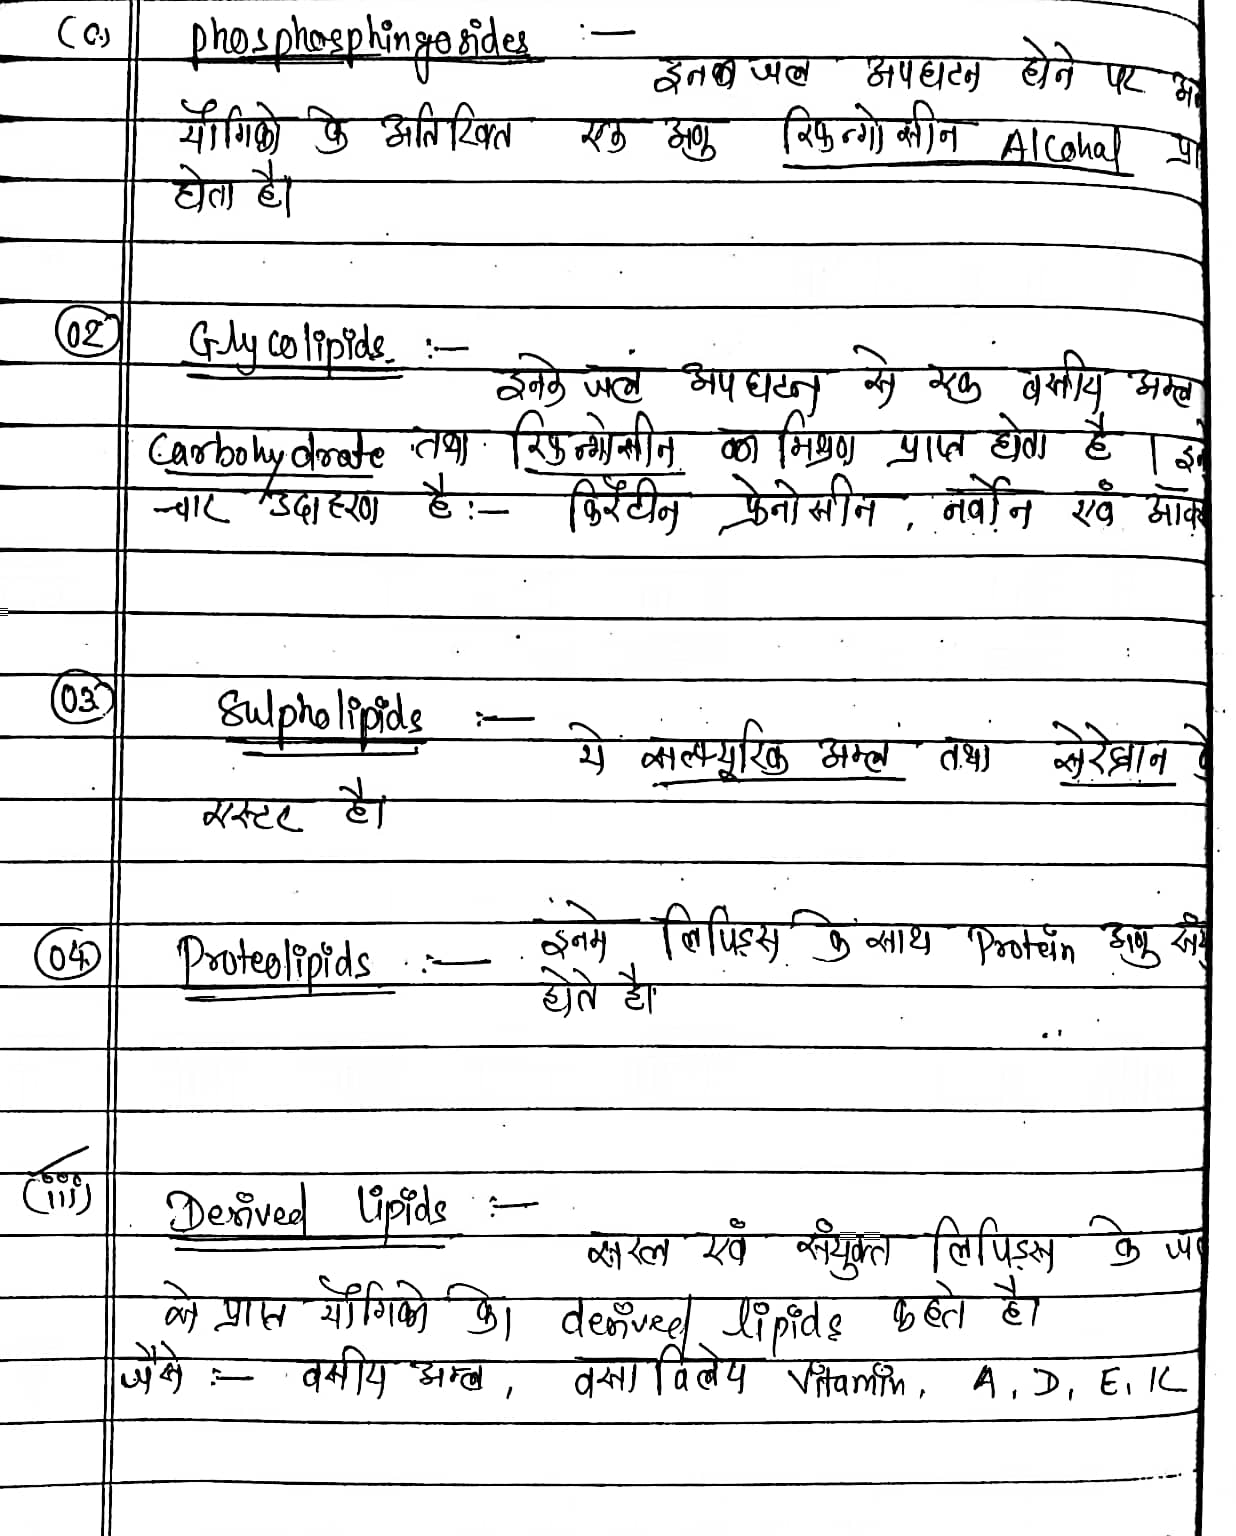 (c) Phosphosphingosides :—
इनका जल अपघटन होने पर
यौगिको के अतिरिक्त एक अणु स्फिन्गोसीन Alcohal
होता है।
02 Glycolipids :—
इनके जल अपघटन से एक वसीय अम्ल
Carbohydrate तथा स्फिन्गोसीन का मिश्रण प्राप्त होता है।
चार उदाहरण है:— किरैटीन फ्रेनोसीन, नर्वोन एवं
03 Sulpholipids :—
ये सल्फ्यूरिक अम्ल तथा
एस्टर है।
04. Proteolipids :— इनमे लिपिड्स के साथ Protein अणु
होते है।
(iii) Derived lipids :—
सरल एवं संयुक्त लिपिड्स के
से प्राप्त यौगिको को derived lipids कहते है।
जैसे :— वसीय अम्ल, वसा विलेय Vitamin, A, D, E, K